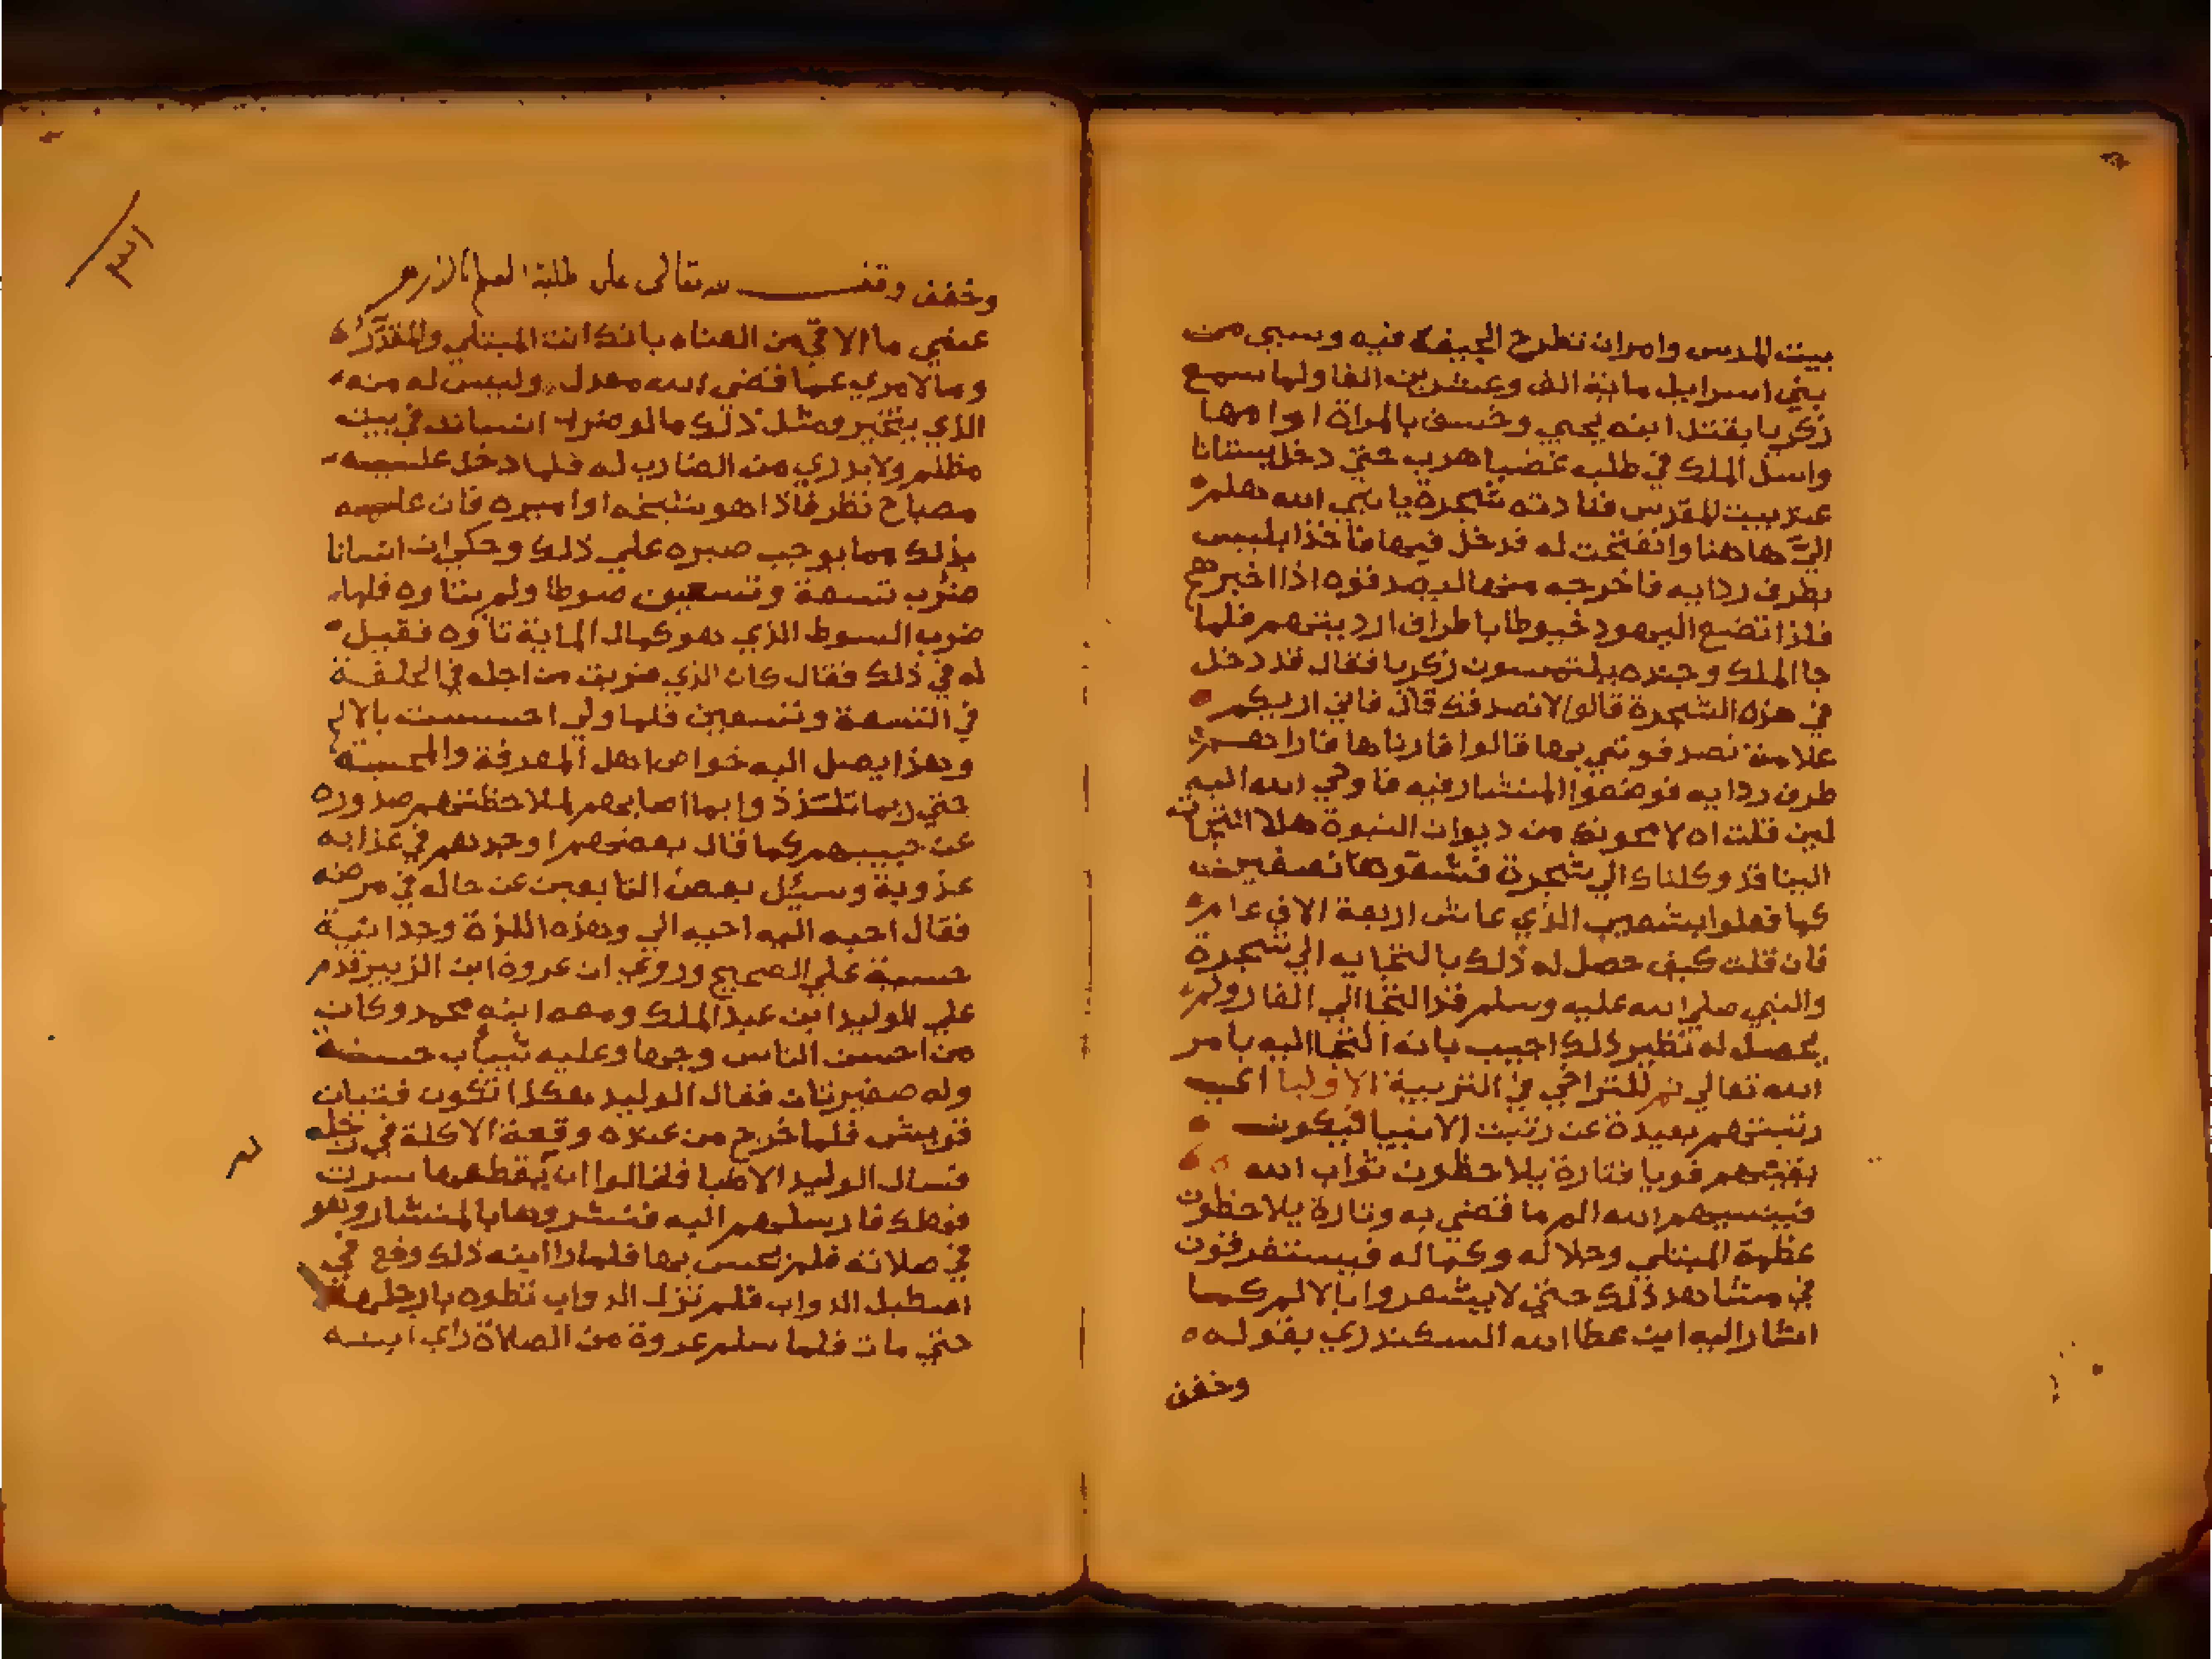 بيت المقدس وامران تطرح الجيفة فيه وسبي من
بني اسرايل ماية الف وعشرين الفا ولما سمع
زكريا بقتل ابنه يحيي وخسف بالمراة او امها
وارسل الملك في طلبه غضبا هرب حتي دخل بستانا
عند بيت المقدس فنادته شجرة يا نبي الله هلم
اليّ هاهنا وانفتحت له فدخل فيها فاخذ ابليس
بطرف ردايه فاخرجه منها ليصدقوه اذا اخبرهم
فلذا تضع اليهود خيوطا باطراف ارديتهم فلما
جا الملك وجنده يلتمسون زكريا فقال قد دخل
في هذه الشجرة قالوا لا نصدقك قال فاني اريكم
علامة تصدقونني بها قالوا فارناها فاراهم
طرف ردايه فوضعوا المنشار فيه فاوحي الله اليه
لين قلت اه لامحونك من ديوان النبوة هلا التجات
الينا قد وكلناك الي شجرة فشقوها نصفين
كما فعلوا بشعيب الذي عاش اربعة الاف عام
فان قلت كيف حصل له ذلك بالتجايه الي شجرة
والنبي صلي الله عليه وسلم قد التجا الي الغار ولم
يحصل له نظير ذلك اجيب بانه التجا اليه بامر
الله تعالي ثم للتراخي في التربية الاوليا اعني
رتبتهم بعيدة عن رتبت الانبيا ليكون
يقينهم قويا فتارة يلاحظون ثواب الله
فينسيهم الله الم ما قضي به وتارة يلاحظون
عظمة المبتلي وجلاله وكماله فيستغرقون
في مشاهد ذلك حتي لا يشعروا بالالم كما
اشار اليه ابن عطا الله السكندري بقوله
وخفف
وخفف وقف لله تعالى على طلبة العلم بالازهر
عنّي ما الاقي من العناء بانك انت المبتلي والمقدّر
وما لامري عما قضي الله معدل وليس له منه
الذي يتخير ومثل ذلك ما لو ضرب انسانا في بيت
مظلم ولا يدري من الضارب له فلما دخل عليه
مصباح نظر فاذا هو شيخه او اميره فان علمه
بذلك مما يوجب صبره علي ذلك وحكي ان انسانا
ضرب تسعة وتسعين صوطا ولم يتاوه فلما
ضرب السوط الذي هو كمال الماية تاوه فقيل
له في ذلك فقال كان الذي ضربت من اجله في الحلقة
في التسعة وتسعين فلما ولي احسست بالالم
وهذا يصل اليه خواص اهل المعرفة والمحبة
حتي ربما تلذذوا بما اصابهم لملاحظتهم صدوره
عن حبيبهم كما قال بعضهم اوجدهم في عذابه
عذوبة وسيل بعض التابعين عن حاله في مرضه
فقال احبه اليه احبه الي وهذه اللذة وجدانية
حسية علي الصحيح وروي ان عروة ابن الزبير قدم
علي الوليد ابن عبد الملك ومعه ابنه محمد وكان
من احسن الناس وجها وعليه ثياب حسنة
وله صفيرتان فقال الوليد هكذا تكون فتيان
قريش فلما خرج من عنده وقعة الاكلة في رجله
فسال الوليد الاطبا فقالوا ان يقطعها سرت
فارسلهم اليه فنشروها بالمنشار وهو
في صلاته فلم يحس بها فلما راا ابنه ذلك وقع في
اصطبل الدواب فلم تزل الدواب تطوه بارجلها
حتي مات فلما سلم عروة من الصلاة راي ابنه